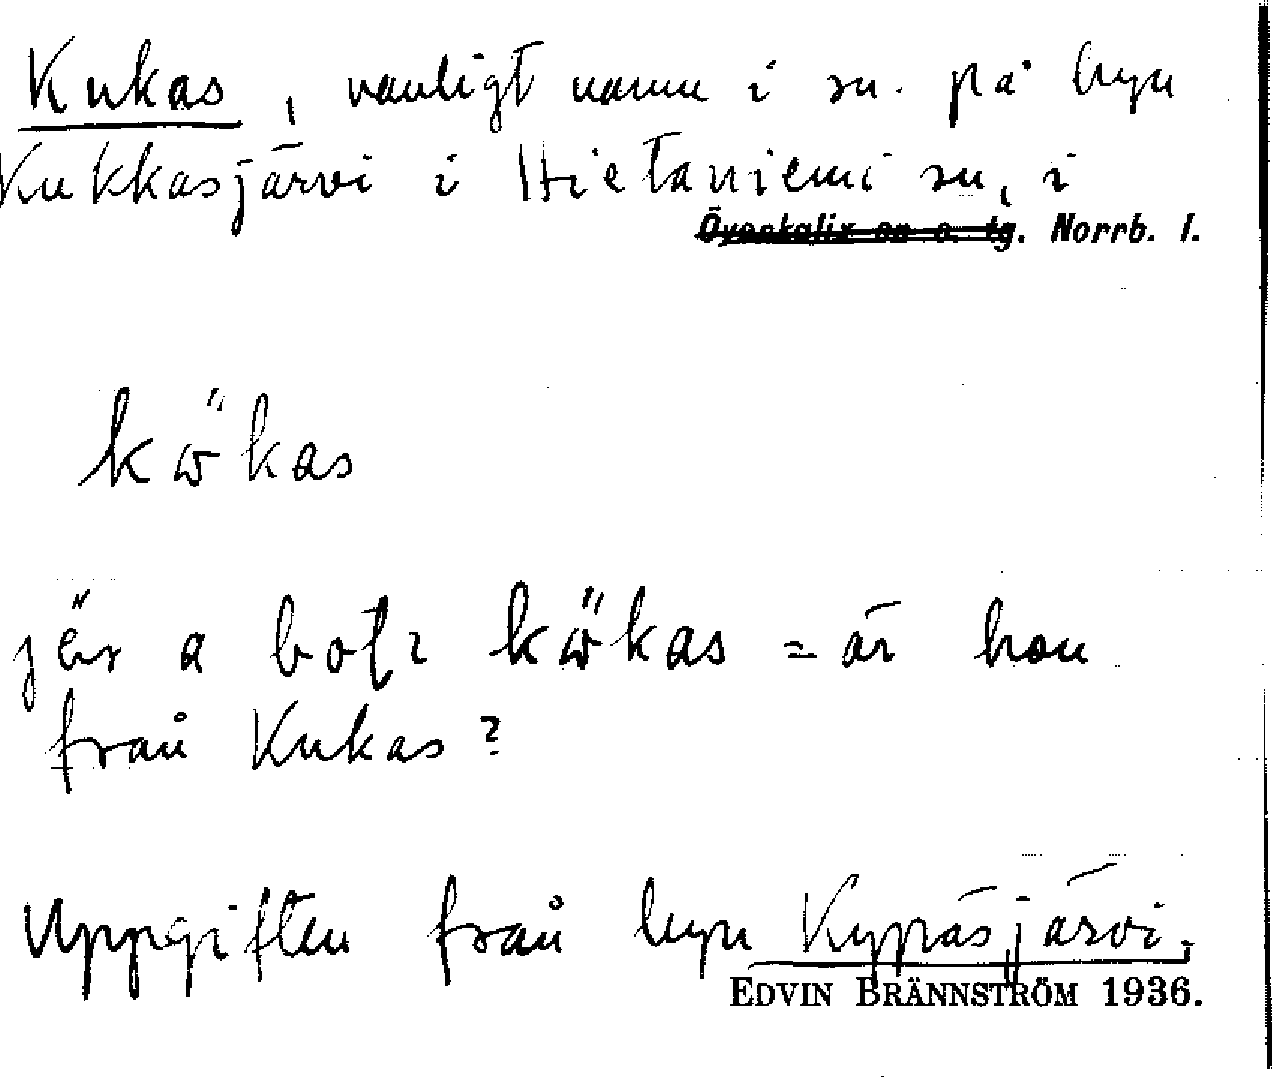 Kukas, vanligt namn i sn. på byn
Kukkasjärvi i Hietaniemi sn, i
Överkalix sn o. tg. Norrb. l.
kω̈kas
jēr a bofʅ kω̈kas = är han
från Kukas?
Uppgiften från byn Kypäsjärvi.
EDVIN BRÄNNSTRÖM 1936.